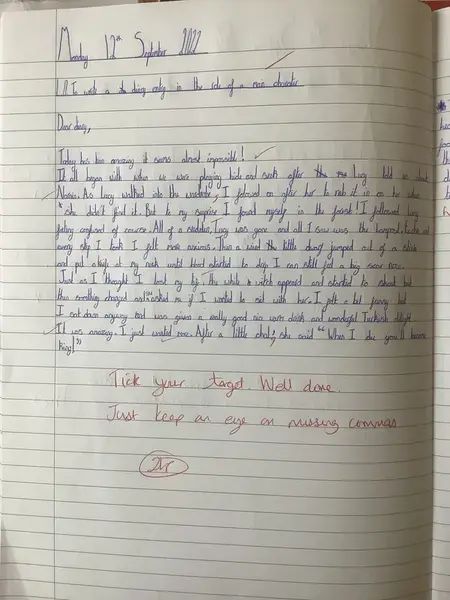 Monday 12th September 2022
L.O To write a diary entry in the role of a main character
Dear diary,
Today has been amazing it seems almost impossible!
It all began with when we were playing hide and seek after Lucy told us about
Narnia. As Lucy walked into the wardrobe, I followed on after her to rub it in on her when
she didn't find it. But to my suprise I found myself in the forest! I followed Lucy
feeling confused of course. All of a sudden, Lucy was gone and all I saw was the lamppost,
every step I took I felt more anxious. Then a wierd little dwarf jumped out of a
and put a knife at my neck until blood started to drip I can still feel a big scar now.
Just as I thought I lost my life. The white witch appeared and started to shout but
then something changed and asked me if I wanted to sit with her. I felt a bit funny but
I sat down anyway and was given a really good nice warm drink and wonderful Turkish delight
It was amazing. I just wanted more. After a little chat, she said "When I die you'll become
king!"
Tick your target. Well done.
Just keep an eye on missing commas